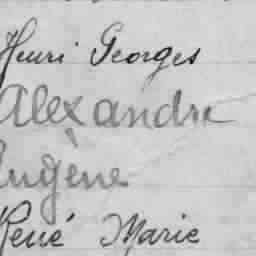 Henri Georges
Alexandre
Eugène
René Marie